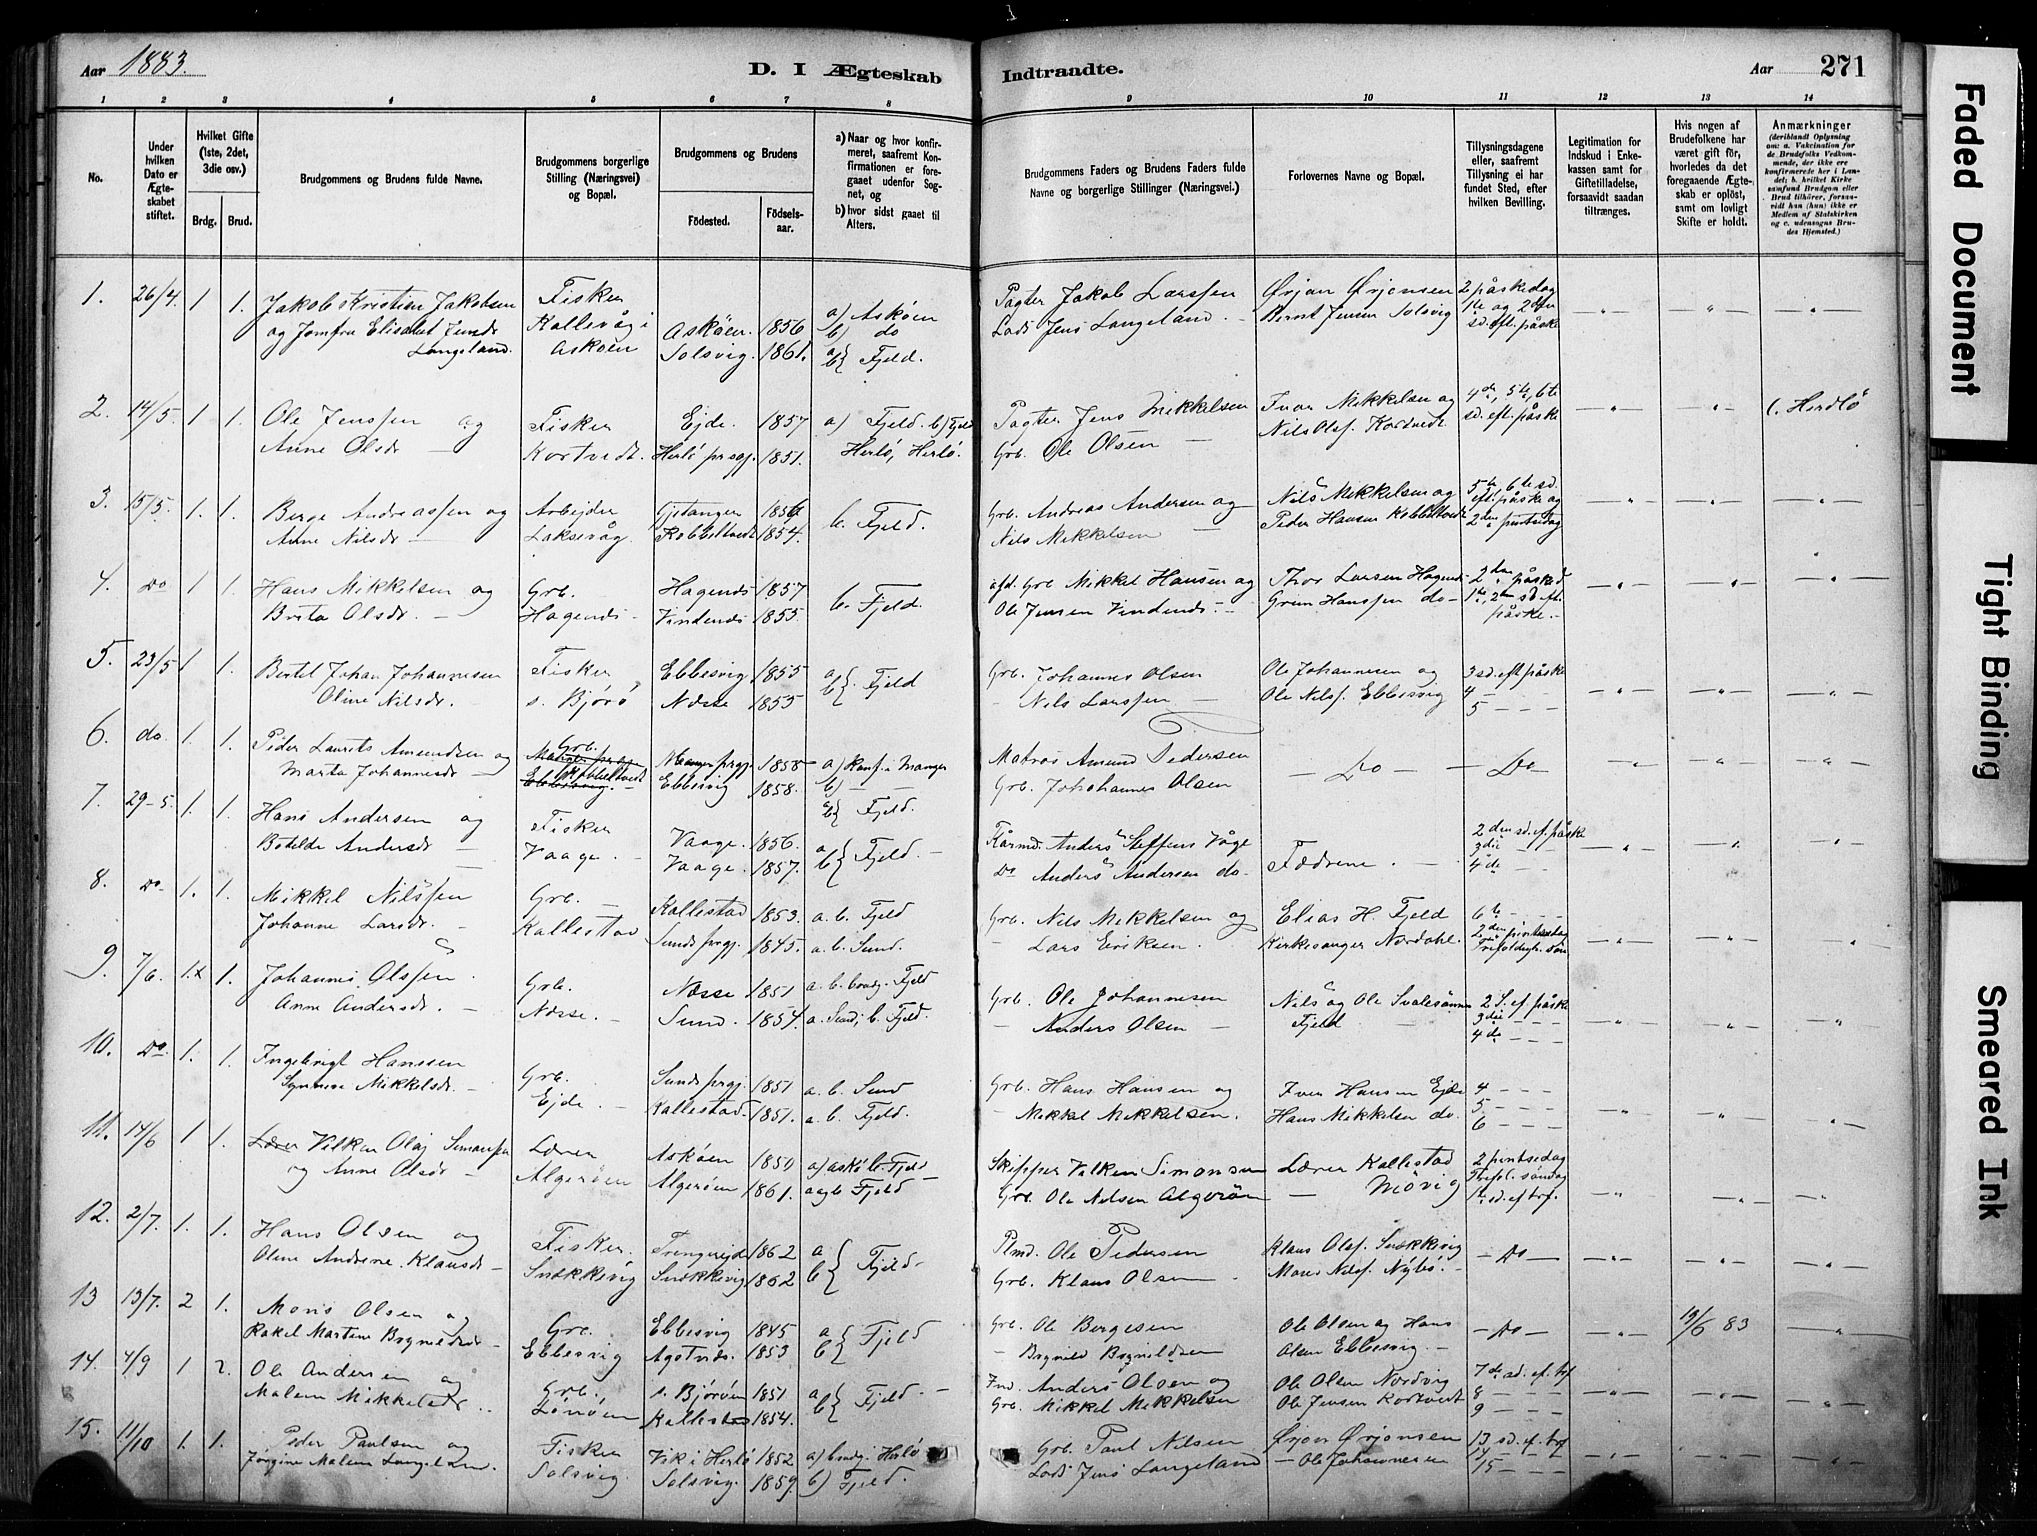 Aar 1883.
D. I Ægteskab
Indtraadte.
Aar
271
1 2 3 4 5 6 7 8 9 10 11 12 13 14
No.
Under hvilken Dato er Ægteskabet stiftet.
Hvilket Gifte (1ste, 2det, 3die osv.)
Brdg. Brud.
Brudgommens og Brudens fulde Navne.
Brudgommens borgerlige Stilling (Næringsvei) og Bopæl.
Brudgommens og Brudens
Fødested. Fødselsaar.
a) Naar og hvor konfirmeret, saafremt Konfirmationen er foregaaet udenfor Sognet, og
b) hvor sidst gaaet til Alters.
Brudgommens Faders og Brudens Faders fulde Navne og borgerlige Stillinger (Næringsvei.)
Forlovernes Navne og Bopæl.
Tillysningsdagene eller, saafremt Tillysning ei har fundet Sted, efter hvilken Bevilling.
Legitimation for Indskud i Enkekassen samt for Giftetilladelse, forsaavidt saadan tiltrænges.
Hvis nogen af Brudefolkene har været gift før, hvorledes da det foregaaende Ægteskab er opløst, samt om lovligt Skifte er holdt.
Anmærkninger
(deriblandt Oplysning om: a. Vakcination for de Brudefolks Vedkommende, der ikke ere konfirmerede her i Landet; b. hvilket Kirkesamfund Brudgom eller Brud tilhører, forsaavidt han (hun) ikke er Medlem af Statskirken og c. udensogns Brudes Hjemsted.)
1. 26/4. 1 1. Jakob Kristian Jakobsen Fisker a) Askøen Pagter Jakob Larssen Ørjan Ørjansen 2 påskedag
og Jomfru Elisabet Jensdr Kallevåg i Askøen. 1856 b) do Jens Langeland. Bernt Jensen Solsvig 1te og 2den
Langeland. Askøen Solsvig. 1861. a/b} Fjeld. sd. eft. påske
2. 14/5. 1 1. Ole Jenssen og Fisker Ejde. 1857 a) Fjeld. b) Fjeld Pagter Jens Mikkelsen Ivar Mikkelsen og 4de, 5te, 6te (. Herdlø
Anne Olsdr Kortvedt. Herlø prgj. 1851. Herlø, Herlø. Grb. Ole Olsen Nils Olss. Kortvedt sd. eft. påske
3. 15/5. 1. 1. Berge Andreassen og Arbejder Gjetanger 1856 b. Fjeld. Grb. Andreas Andersen og Nils Mikkelsen og 5te, 6te sd. eft. påske og
Anne Nilsdr Laksevåg. Kobbeltvedt 1854. Nils Mikkelsen Peder Hansen Kobbeltvedt 2den pintsedag
4. Do 1 1. Hans Mikkelsen og Grb. Hagenæs 1857 b. Fjeld. afd. Grb. Mikkel Hansen og Thor Larsen Hagenæs 2den påsked
Brita Olsdr. Hagenæs Vindenæs 1855. Ole Jensen Vindenæs Grim Hanssen do 1te, 2den sd. eft. påske.
5. 23/5 1 1. Bertel Johan Johannesen Fisker Ebbesvig 1855 a/b}. Fjeld Grb. Johannes Olsen Ole Johannesen og 3 sd. eft påske
Oline Nilsdr. s. Bjørø Næsse 1855 Nils Larssen Ole Nilss. Ebbesvig 4 5
6. do. 1. 1. Peder Laurits Amundsen og Grb. Kobbeltvedt Manger prgj. 1858 a) Konf. i Manger Matros Amund Pedersen Do Do
Marta Johannesdr Ebbesvig. Ebbesvig 1858. b) Grb. Johannes Olsen
7. 29-5. 1. 1. Hans Andersen og Fisker Vaage. 1856. a/b} Fjeld. Anders Steffens Våge Fædrene. 2den sd. ef. påske
Botilde Andersdr Vaage. Vaage. 1857. a/b} Fjeld. Do Anders Andersen do. 3die 4de
8. Do. 1. 1. Mikkel Nilssen Grb. Kallestad 1853. a. b. Fjeld Grb. Nils Mikkelsen og Elias H. Fjeld 6te
Johanne Larsdr. Kallestad Sunds prgj. 1845. a. b. Sund. Lars Eriksen. Kirkesanger Nordahl. 2den pintsedag
9. 7/6. 1.x 1. Johannes Olssen Grb. Næsse 1851 Fjeld Grb. Ole Johannesen Nils og Ole 2 S. ef. påske
Anne Andersdr. Næsse. Sund. 1854. a. Sund, b. Fjeld. Anders Olsen Fjeld 3die 4de
10. Do. 1. 1. Ingebrigt Hanssen Grb. Sunds prgj. 1851 a. b. Sund Grb. Hans Hansen og Iver Hansen Ejde 4
Synneve Mikkelsdr. Ejde. Kallestad. 1851. a. b. Fjeld. Mikkel Mikkelsen. Hans Mikkelsen do. 5 6
11. 14/6 1 1. Vilken Olaj Simonsen Lærer Askøen 1850 a) askø b. Fjeld Skipper Vilken Simonsen Lærer Kallestad 2 pintsedag
og Anne Olsdr Algerøen Algerøen 1861. a og b Fjeld Grb. Ole Nilsen Algerøen Møvig 1te sd. ef tref.
12. 2/7. 1. 1. Hans Olsen og Fisker. 1862 a/b} Fjeld. Plmd. Ole Pedersen Klaus Olss. Snekkevig Do
Oline Andrine Klausdr Snekkevig Snekkevig 1862 Grb. Klaus Olsen Mons Nilss. Nybø.
13 13/7. 2 1. Mons Olsen og Grb. Ebbesvig 1845 a/b} Fjeld Grb. Ole Bergesen Ole Olsen og Hans Do 19/6 83
Rakel Martine Ebbesvig 1853 Olsen Ebbesvig.
14. 4/9 1 2. Ole Andersen og Grb. s. Bjørøen 1851 a/b} Fjeld Anders Olsen og Ole Olsen Nordvig 7de sd. ef. tref
Malene Mikkelsdr. Kallestad 1854. Grb. Mikkel Mikkelsen Ole Jensen Kortvedt 8 9
15. 11/10 1. 1. Peder Paulsen og Fisker Vik i Herlø 1852 Herlø Grb. Paul Nilsen Ørjan Ørjansen 13 sd. ef. tref
Jørgine Malene Langeland. Solsvig. Solsvig. 1859 b) Fjeld. Jens Langeland Ole Johannesen 14 15
Faded Document
Tight Binding
Smeared Ink